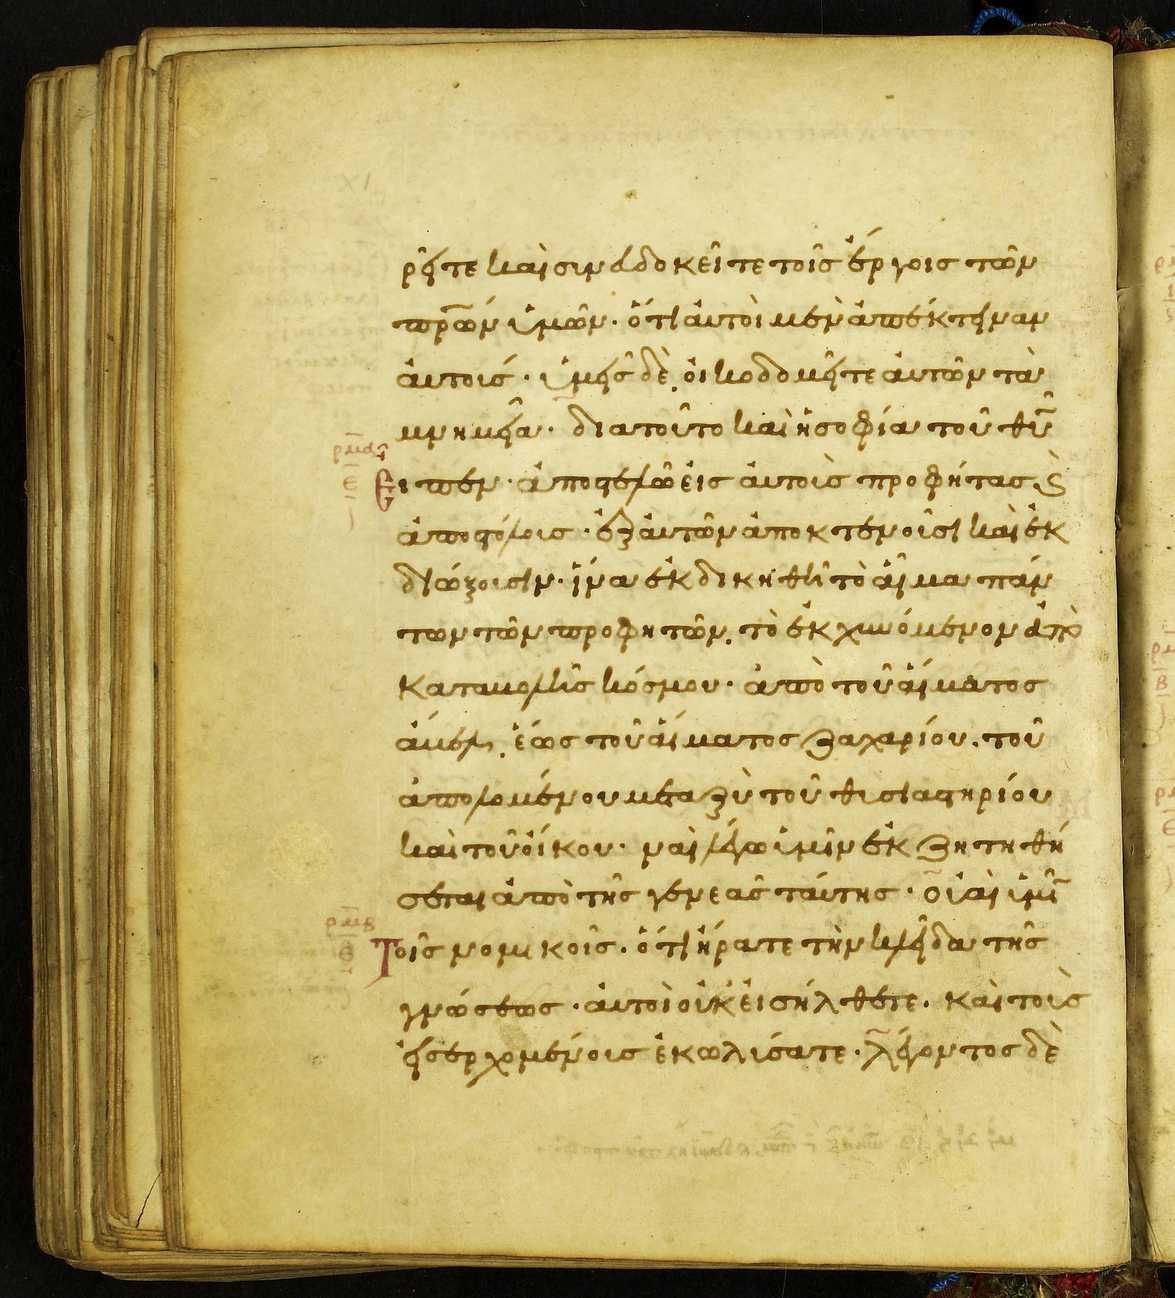 ρεῖτε καὶ συνευδοκεῖτε τοῖς ἔργοις τῶν
πρων ὑμῶν· ὅτι αὐτοὶ μὲν ἀπέκτειναν
αὐτούς· ὑμεῖς δὲ οἰκοδομεῖτε αὐτῶν τὰ
μνημεῖα· διατοῦτο καὶ ἡ σοφία τοῦ θυ
εἶπεν· ἀποστελῶ εἰς αὐτοὺς προφήτας κ
ἀποστόλους· ἐξ αὐτῶν ἀποκτενοῦσι καὶ ἐκ
διώξουσιν· ἵνα ἐκδικηθῆ τὸ αἷμα πάν
των τῶν προφητῶν, τὸ ἐκχυνόμενον ἀπὸ
καταβολῆς κόσμου· ἀπὸ τοῦ αἵματος
ἄβελ, ἕως τοῦ αἵματος ζαχαρίου. τοῦ
ἀπολομένου μεταξὺ τοῦ θυσιαστηρίου
καὶ τοῦ οἴκου· ναὶ λέγω ὑμῖν ἐκζητηθή
σεται ἀπὸ τῆς γενεᾶς ταύτης· οὐαὶ ὑμῖ
τοῖς νομικοῖς. ὅτι ἤρατε τὴν κλεῖδα τῆς
γνώσεως· αὐτοὶ οὐκ εἰσήλθετε. καὶ τοὺς
εἰσερχομένους ἐκωλύσατε· λέγοντος δὲ